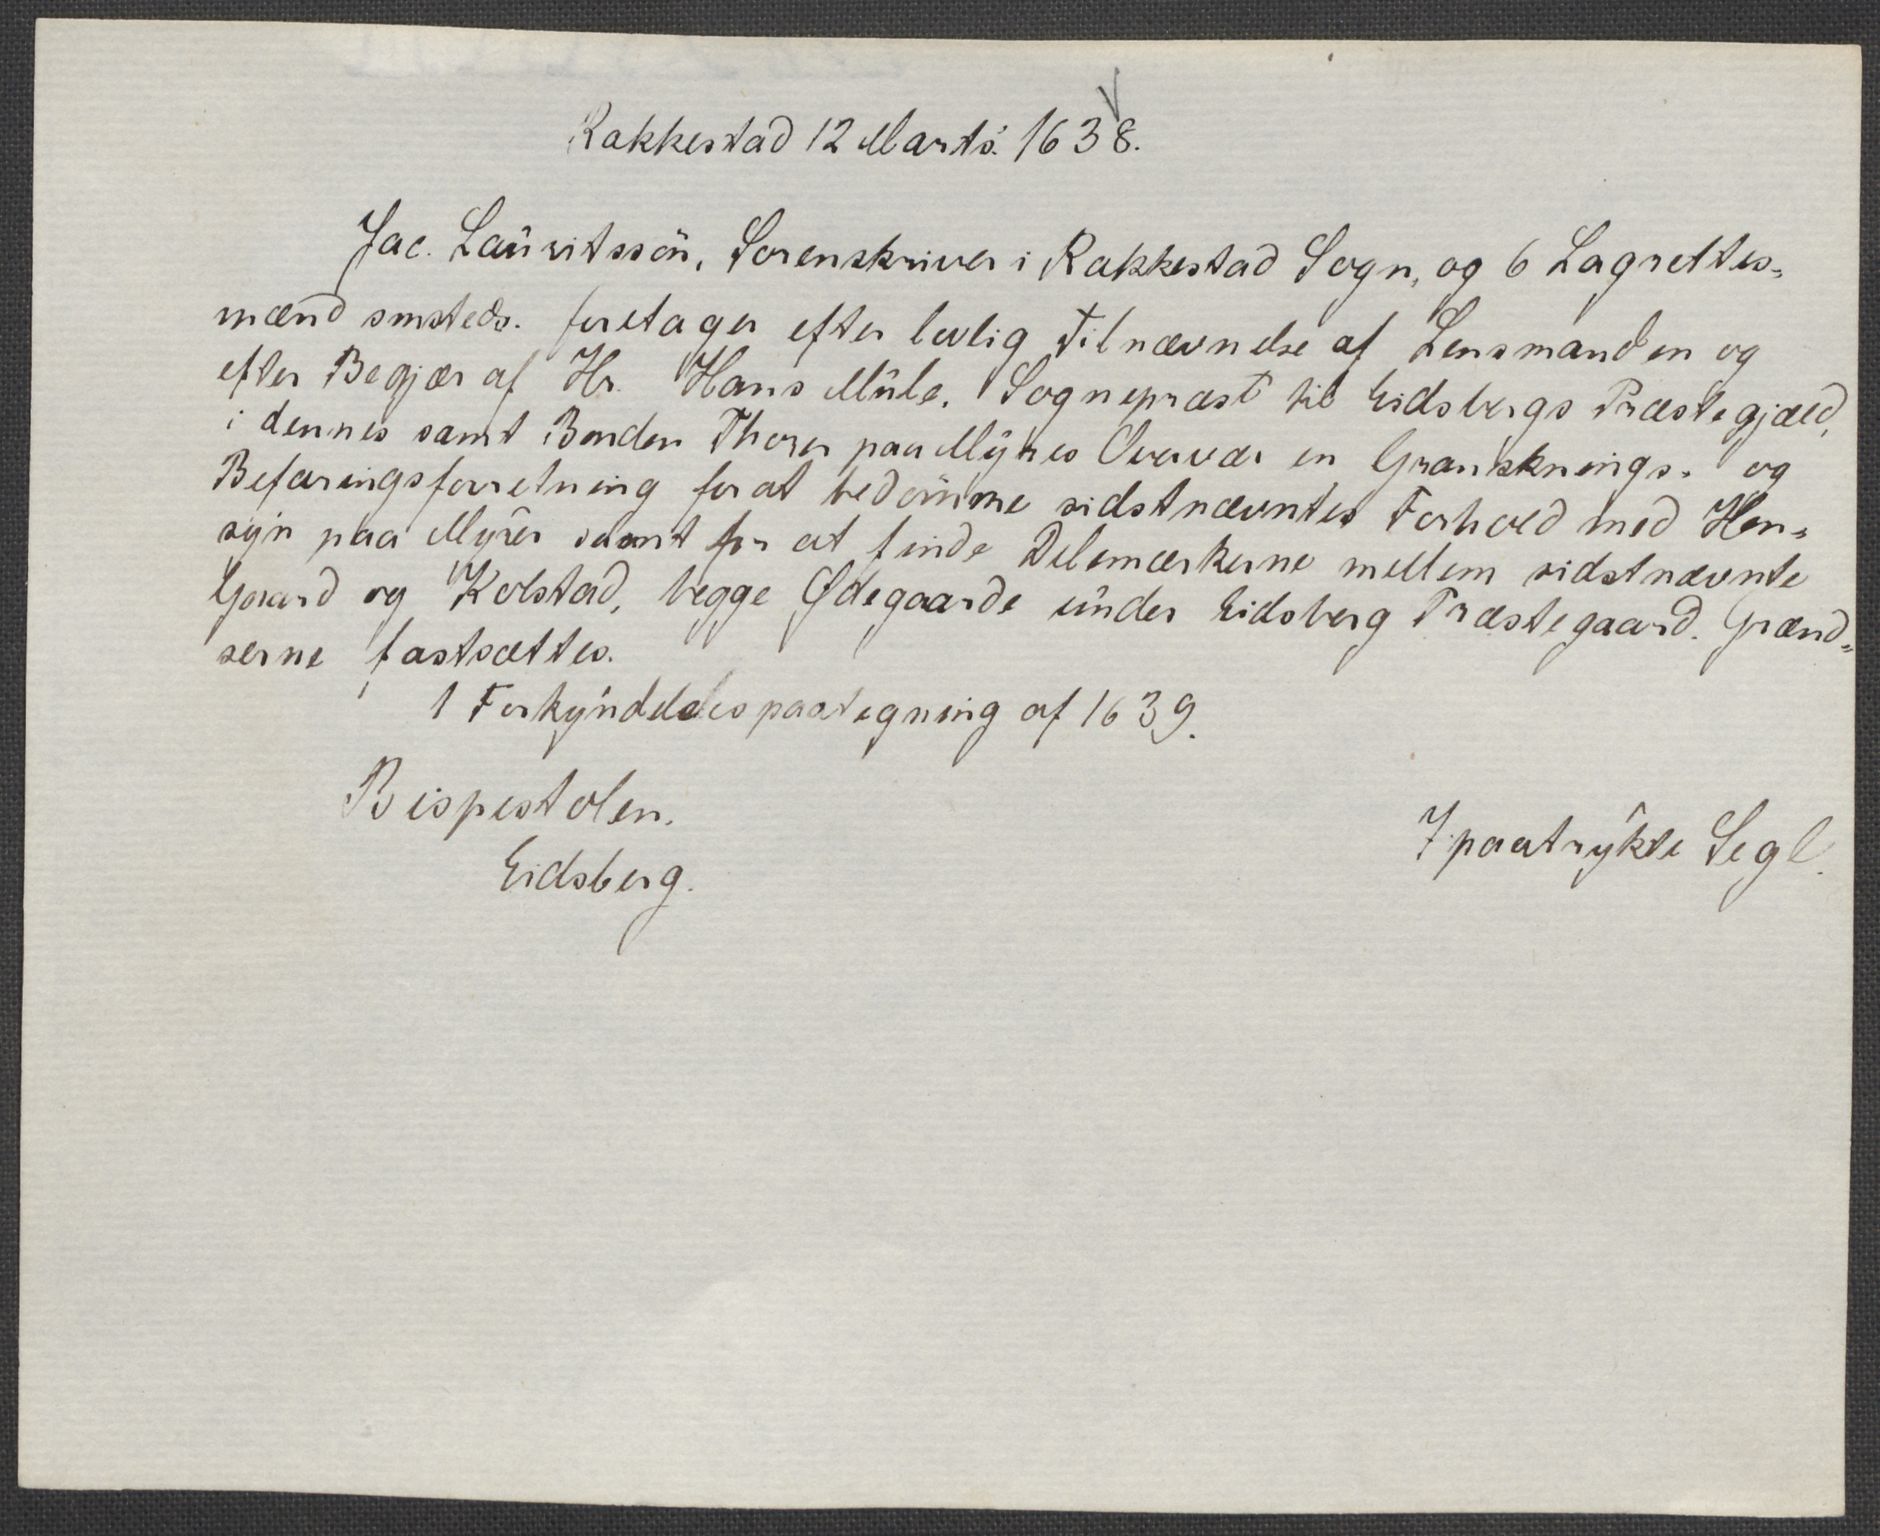 Rakkestad 12 Marts. 1638.
Jac. Lauritssön, Sorenskriver i Rakkestad Sogn, og 6 Lagrettes-
mænd smsteds. foretager efter lovlig Tilnævnelse af Lensmanden og
efter Begjær af Hr. Hans Mule, Sogneprest til Eidsbergs Præstegjæld,
i dennes samt Bonden Thorer paa Myres Overvær en Gransknings- og
Befaringsforretning for at bedömme sidstnævntes Forhold med Hen-
syn paa Myrer samt for at finde Delemærkerne mellem sidstnævnte
Gaard og Kolstad, begge Ødegaarde under Eidsberg Præstegaard. Grænd-
serne fastsættes.
1 Forkyndelsespaategning af 1639.
Bispestolen.
Eidsberg.
7 paatrykte Segl.